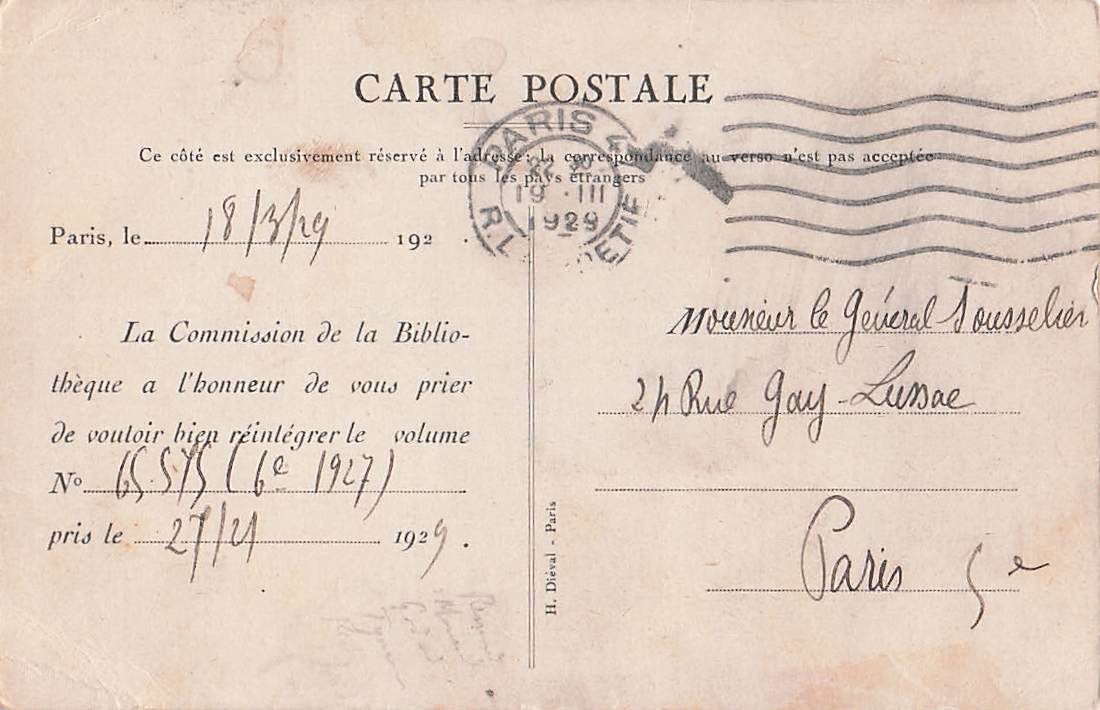 CARTE POSTALE
Ce côté est exclusivement réservé à l'adresse; la correspondance au verso n'est pas acceptée
par tous les pays étrangers
PARIS
19 · III
1929
R. L ETIE
Paris, le 18/3/29 192 .
La Commission de la Biblio-
thèque a l'honneur de vous prier
de vouloir bien réintégrer le volume
No 65.575 (6e 1927)
pris le 27/2/ 1929 .
H. Diéval - Paris
Monsieur le Général Lousselier
24 Rue Gay-Lussac
Paris 5e